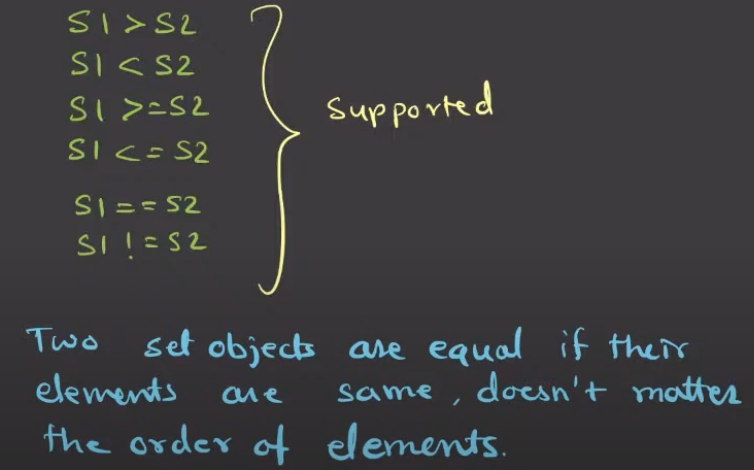 S1 > S2
S1 < S2
S1 >= S2
S1 <= S2
supported
S1 == S2
S1 != S2
Two set objects are equal if their
elements are same, doesn't matter
the order of elements.